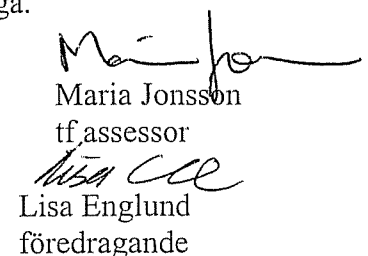 ga.
Maria Jonsson
tf assessor
Lisa Englund
föredragande